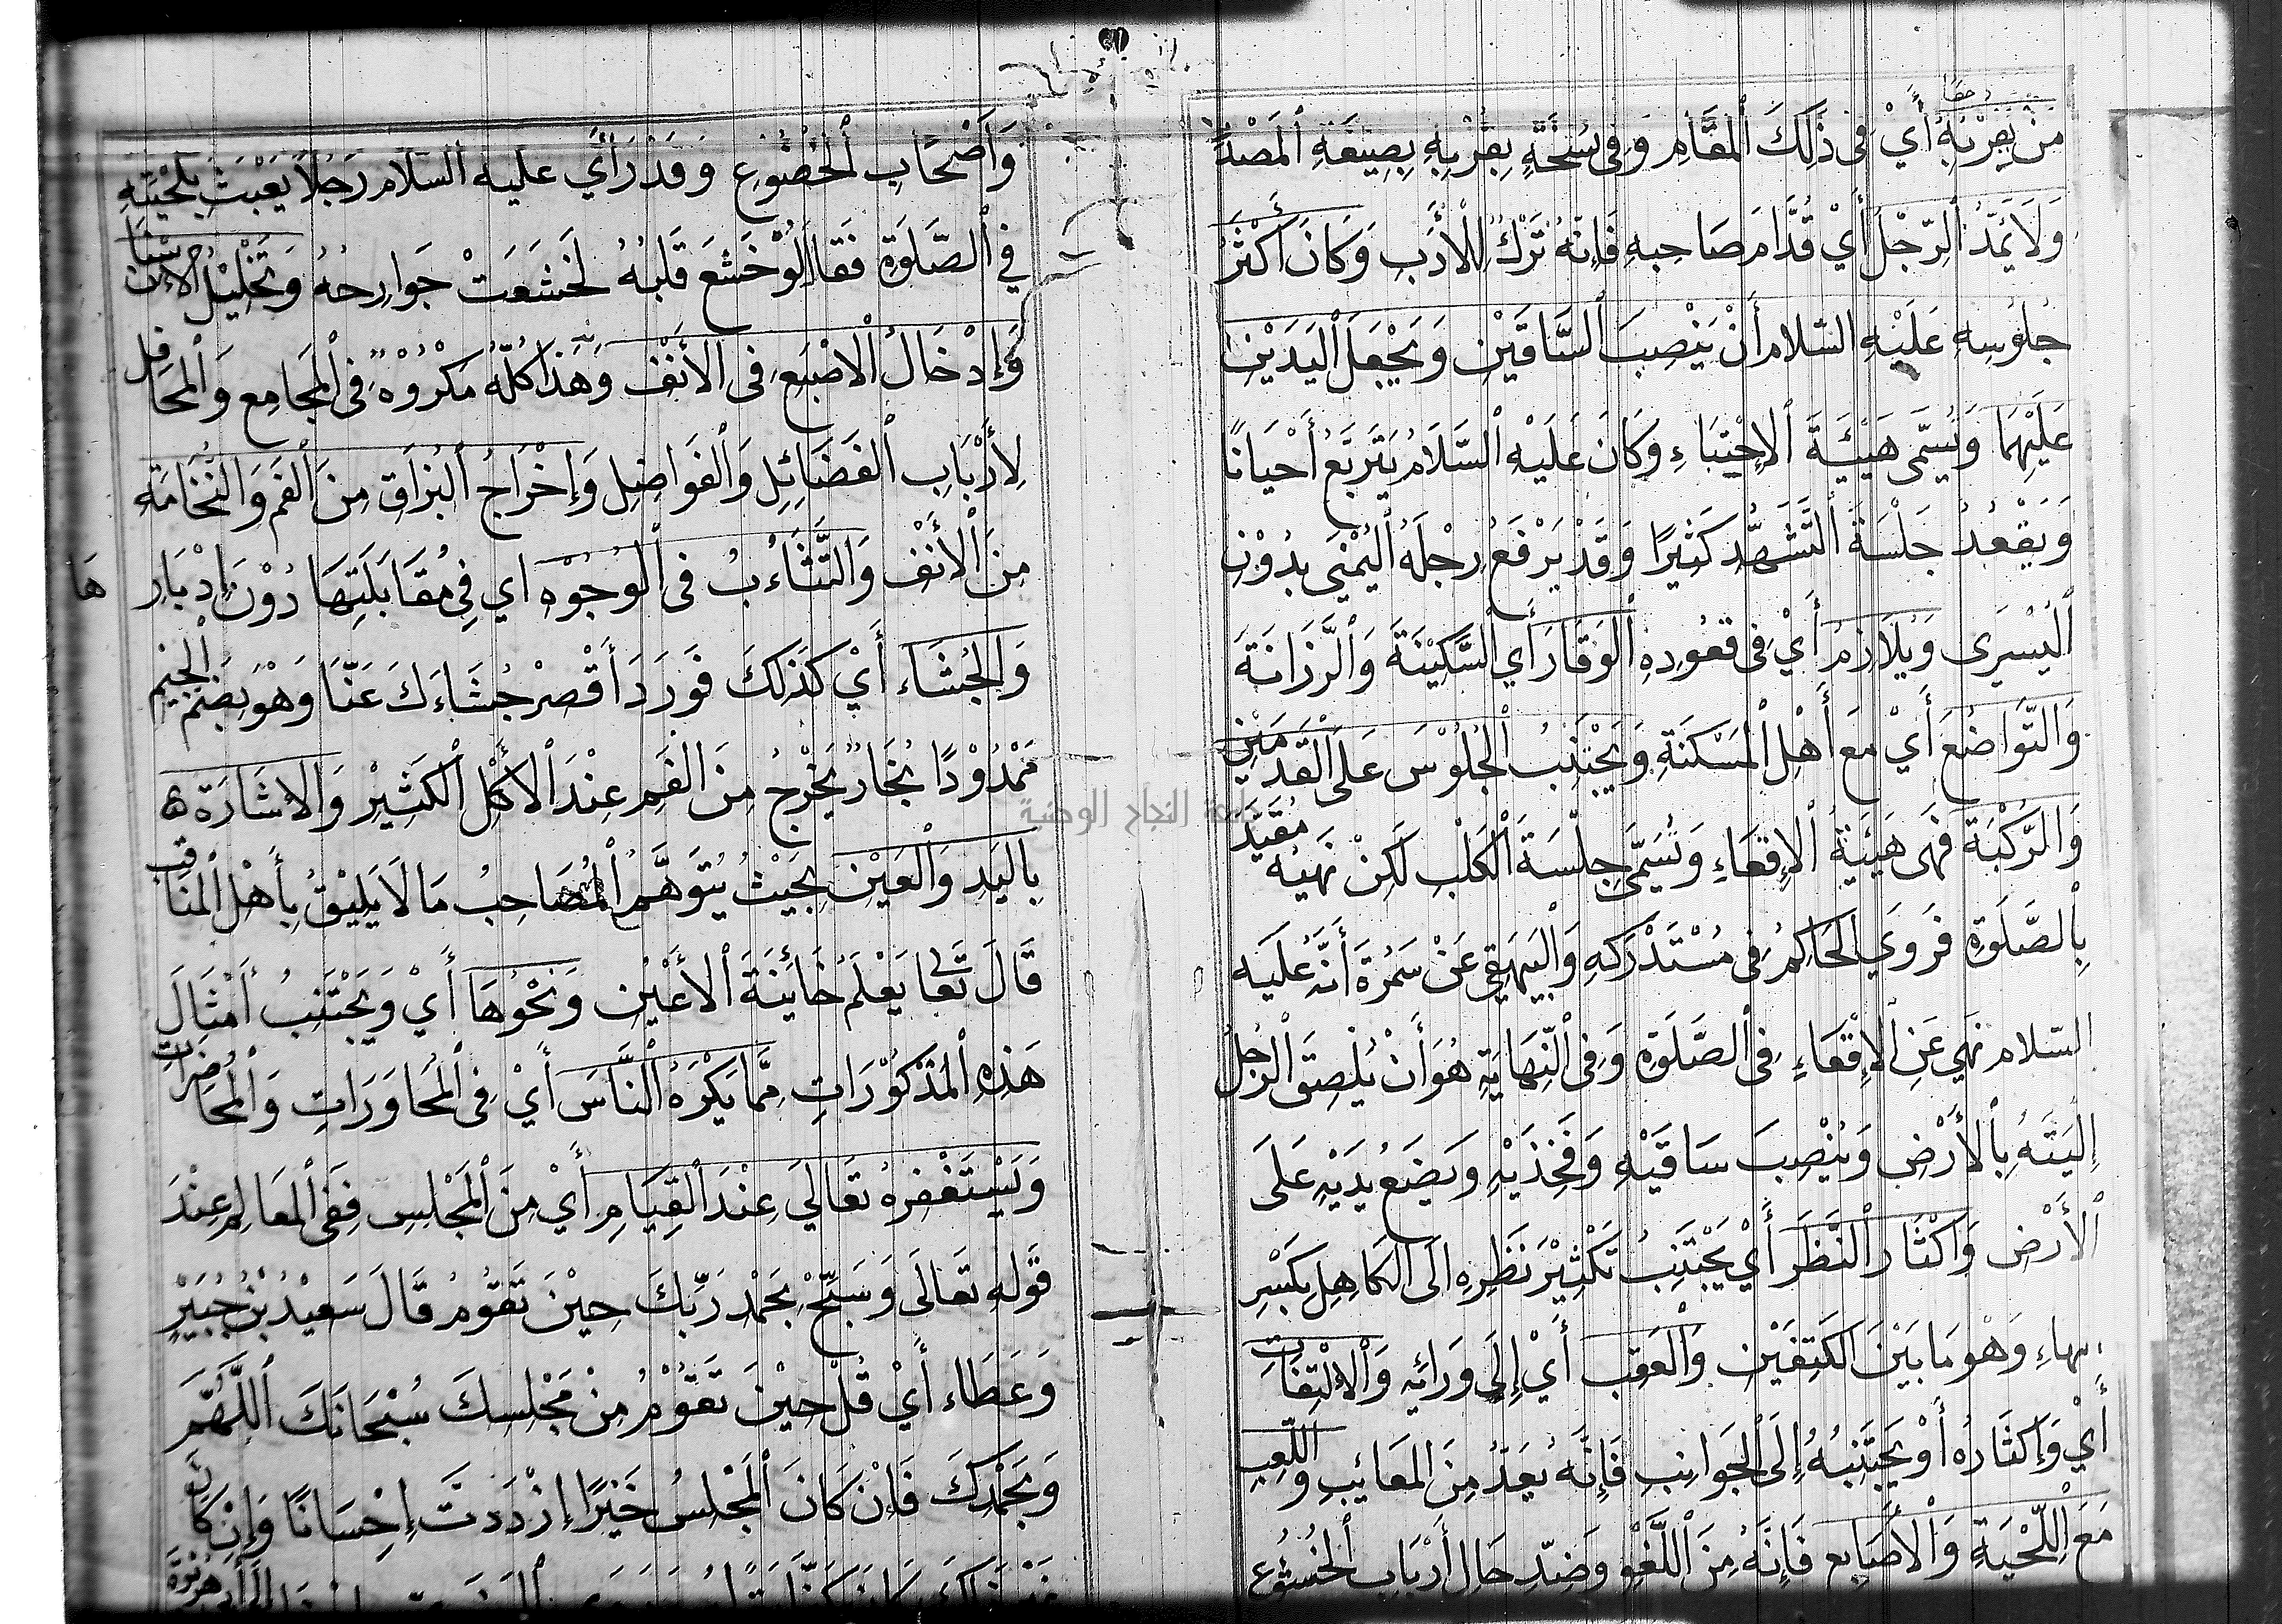 مَنْ بِقُرْبِهِ أَيْ فِى ذَلِكَ ٱلْمَقَامِ وَفِى نُسْخَةٍ بِقُرْبِهِ بِصِيغَةِ ٱلْمَصْدَرِ
وَلَا يَمُدُّ ٱلرِّجْلَ أَيْ قُدَّامَ صَاحِبِهِ فَإِنَّهُ تَرْكٌ لِلْأَدَبِ وَكَانَ أَكْثَرُ
جُلُوسِهِ عَلَيْهِ السَّلَام أَنْ يَنْصِبَ ٱلسَّاقَيْنِ وَيَجْعَلَ ٱلْيَدَيْنِ
عَلَيْهِمَا وَتُسَمَّى هَيْئَةَ ٱلاِحْتِبَاءِ وَكَانَ عَلَيْهِ ٱلسَّلَامُ يَتَرَبَّعُ أَحْيَانًا
وَيَقْعُدُ جَلْسَةَ ٱلتَّشَهُّدِ كَثِيرًا وَقَدْ يَرْفَعُ رِجْلَهُ ٱلْيُمْنَى بِدُوْنِ
ٱلْيُسْرَى وَيُلَازِمُ أَيْ فِى قُعُودِهِ ٱلْوَقَارَ أَي ٱلسَّكِيْنَةَ وَٱلرَّزَانَةَ
وَٱلتَّوَاضُعَ أَيْ مَعَ أَهْلِ ٱلْمَسْكَنَةِ وَيَجْتَنِبُ ٱلْجُلُوْسَ عَلَى ٱلْقَدَمَيْنِ
وَٱلرُّكْبَةِ فَهِى هَيْئَةُ ٱلْإِقْعَاءِ وَتُسَمَّى جِلْسَةَ ٱلْكَلْبِ لَكِنْ نَهْيُهُ مُقَيَّدٌ
بِٱلصَّلَوةِ فَرَوَي الحَاكِمُ فِى مُسْتَدْرَكِهِ وَٱلْبَيْهَقِي عَنْ سَمُرَةَ أَنَّهُ عَلَيْه
السّلام نَهَي عَنِ ٱلْإِقْعَاءِ فِى ٱلصَّلَوةِ وَفِى ٱلنِّهَايَةِ هُوَ أَنْ يُلْصِقَ ٱلرَّجُلُ
إِلْيَتَهُ بِٱلْأَرْضِ وَيَنْصِبَ سَاقَيْهِ وَفَخِذَيْهِ وَيَضَعُ يَدَيْهِ عَلَى
ٱلْأَرْضِ وَإِكْثَارَ ٱلنَّظَرِ أَيْ يَجْتَنِبُ تَكْثِيْرَ نَظَرِهِ الَى الكَاهِلِ بِكَسْرِ
الهاءِ وَهُوَ مَا بَيْنَ ٱلْكَتِفَيْنِ وَٱلْعَقِبِ أَيْ إِلَى وَرَائِهِ وَٱلْاِلْتِفَاتِ
أَيْ وَإِكْثَارُهُ أَوْ يَجْتَنِبُهُ إِلَى ٱلْجَوَانِبِ فَإِنَّهُ يُعَدُّ مِنَ المَعَائِبِ وَٱللَّعِبِ
مَعَ ٱللِّحْيَةِ وَٱلْأَصَابِع فَإِنَّهُ مِنَ ٱللَّغْوِ وَضِدِّ حَالِ أَرْبَابِ ٱلْخُشُوْعِ
وَأَصْحَابِ ٱلْخُضُوْعِ وَقَدْ رَأَي عليه السلام رَجُلًا يَعْبَثُ بِلِحْيَتِهِ
فِي ٱلصَّلَوةِ فَقَال لَوْ خَشَعَ قَلْبُهُ لَخَشَعَتْ جَوَارِحُهُ وَتَخْلِيْلَ الْاَسْنَان
وَإِدْخَالُ ٱلْاِصْبَعِ فِى الأَنْفِ وَهَذَا كُلُّهُ مَكْرُوْهٌ فِى ٱلْمَجَامِعِ وَٱلْمَحَافِلِ
لِأَرْبَابِ ٱلْفَضَائِلِ وَٱلْفَوَاضِلِ وَإِخْرَاجُ ٱلْبُزَاقِ مِنَ ٱلْفَمِ وَالنُّخَامَةِ
مِنَ ٱلْأَنْفِ وَالتَّثَاءُبُ فى ٱلْوُجُوْهِ اي فِي مُقَابَلَتِهَا دُوْنَ إِدْبَارِهَا
وَالْجُشَاء أَيْ كَذَلِكَ فَوَرَدَ أَقْصِرْ جُشَاءَكَ عَنَّا وَهْوَ بِضَمِّ الْجِيْمِ
مَمْدُوْدًا بُخَارٌ يَخْرُجُ مِنَ الفَمِ عِنْدَ ٱلْأَكْلِ ٱلْكَثِيْرِ وَالإِشَارَة
بِاليَدِ وَٱلْعَيْنِ بِحَيْثُ يُتَوَهَّمُ ٱلْمُصَاحِبُ مَا لَا يَلِيْقُ بِأَهْلِ ٱلْمَنَاقِب
قَالَ تَعَالى يَعْلَمُ خَائِنَةَ ٱلْأَعْيُنِ وَنَحْوُهَا أَيْ وَيَجْتَنِبُ أَمْثَالَ
هَذِهِ ٱلْمَذْكُوْرَاتِ مِمَّا يَكْرَهُ ٱلنَّاسُ أَيْ فِى ٱلْمُحَاوَرَاتِ وَٱلْمُحَاضَرَاتِ
وَيَسْتَغْفِرُهُ تَعَالَي عِنْدَ ٱلْقِيَامِ أَيْ مِنَ ٱلْمَجْلِسِ فَفِى ٱلْمَعَالِمِ عِنْدَ
قَوْلِهِ تَعَالَى وَسَبِّحْ بِحَمْدِ رَبِّكَ حِيْنَ تَقُوْمُ قَالَ سَعِيْدُ بْنُ جُبَيْرٍ
وَعَطَاء أَيْ قُلْ حِيْنَ تَقُوْمُ مِنْ مَجْلِسِكَ سُبْحَانَكَ ٱللَّهُمَّ
وَبِحَمْدِكَ فَإِنْ كَانَ ٱلْمَجْلِسُ خَيْرًا إِزْدَدتَ إِحْسَانًا وَإِنْ كَانَ
جامعة النجاح الوطنية